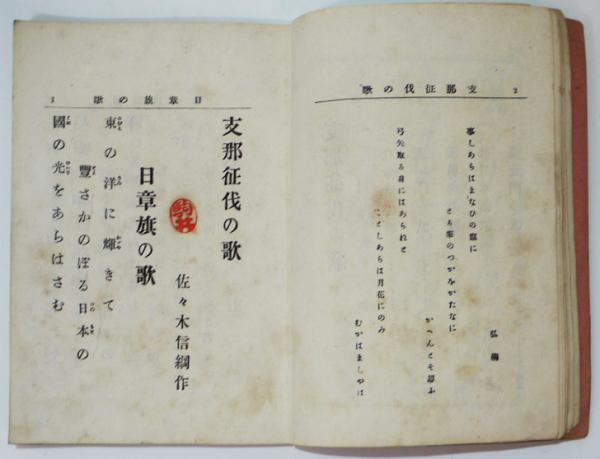 支那征伐の歌
2
弘綱
事しあらばまなひの窓に
とる筆のつかをかたなに
かへんとそ思ふ
弓矢取る身にはあられと
ことしあらは月花にのみ
むかはましやは
日章旗の歌
支那征伐の歌
佐々木信綱作
日章旗の歌
東の洋に輝きて
豐さかのぼる日本の
國の光をあらはさむ